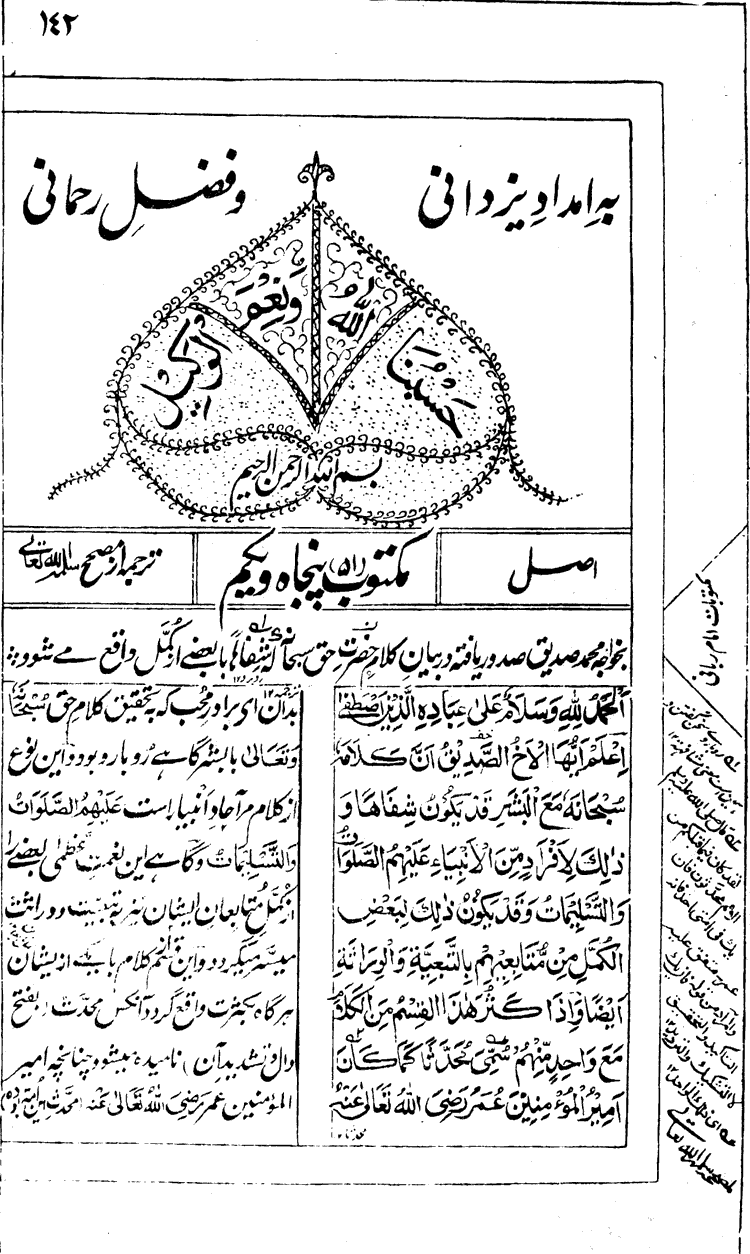 ١٤٢
به امدادِ یزدانی
و فضلِ رحمانی
حَسْبُنَا اللّٰهُ وَنِعْمَ الْوَکِیْل
بسم الله الرحمن الرحیم
اصل
مکتوب (۵۱) پنجاه و یکم
ترجمه از مصحح سلمه الله تعالی
بخواجه محمد صدیق صدور یافته در بیان کلام حضرت حق سبحانه که شفاهًا با بعضے از کمّل واقع مے شود
اَلْحَمْدُ لِلّٰهِ وَسَلَامٌ عَلٰی عِبَادِهِ الَّذِیْنَ اصْطَفٰی
اِعْلَمْ اَیُّهَا الْاَخُ الصِّدِّیْقُ اَنَّ کَلَامَهٗ
سُبْحَانَهٗ مَعَ الْبَشَرِ قَدْ یَکُوْنُ شِفَاهًا وَ
ذٰلِكَ لِاَفْرَادٍ مِّنَ الْاَنْبِیَاءِ عَلَیْهِمُ الصَّلَوَاتُ
وَالتَّسْلِیْمَاتُ وَقَدْ یَکُوْنُ ذٰلِكَ لِبَعْضِ
الْکُمَّلِ مِنْ مُّتَابِعِیْهِمْ بِالتَّبَعِیَّةِ وَالْوِرَاثَةِ
اَیْضًا وَاِذَا کَثُرَ هٰذَا الْقِسْمُ مِنَ الْکَلَامِ
مَعَ وَاحِدٍ مِّنْهُمْ سُمِّیَ مُحَدَّثًا کَمَا کَانَ
اَمِیْرُ الْمُؤْمِنِیْنَ عُمَرُ رَضِیَ اللّٰهُ تَعَالٰی عَنْهُ
بدان ای برادر محب که به تحقیق کلام حق سُبْحَانَهٗ
وَتَعَالٰی با بشر گاهے رُوبارو بود و این نوع
از کلام مر آحاد انبیا راست عَلَیْهِمُ الصَّلَوَاتُ
وَالتَّسْلِیْمَاتُ و گاهے این نعمت عظمٰی بعضے را
از کمّل متابعان ایشان نیز به تبعیت و وراثت
میسر میگردد و این قسم کلام با یکے از ایشان
هرگاه بکثرت واقع گردد آنکس محدَّث (بفتح
دال و تشدید آن) نامیده میشود چنانچه امیر
المؤمنین عمر رَضِیَ اللّٰهُ تَعَالٰی عَنْهُ (محدث این امة بوده)
مکتوبات امام ربانی